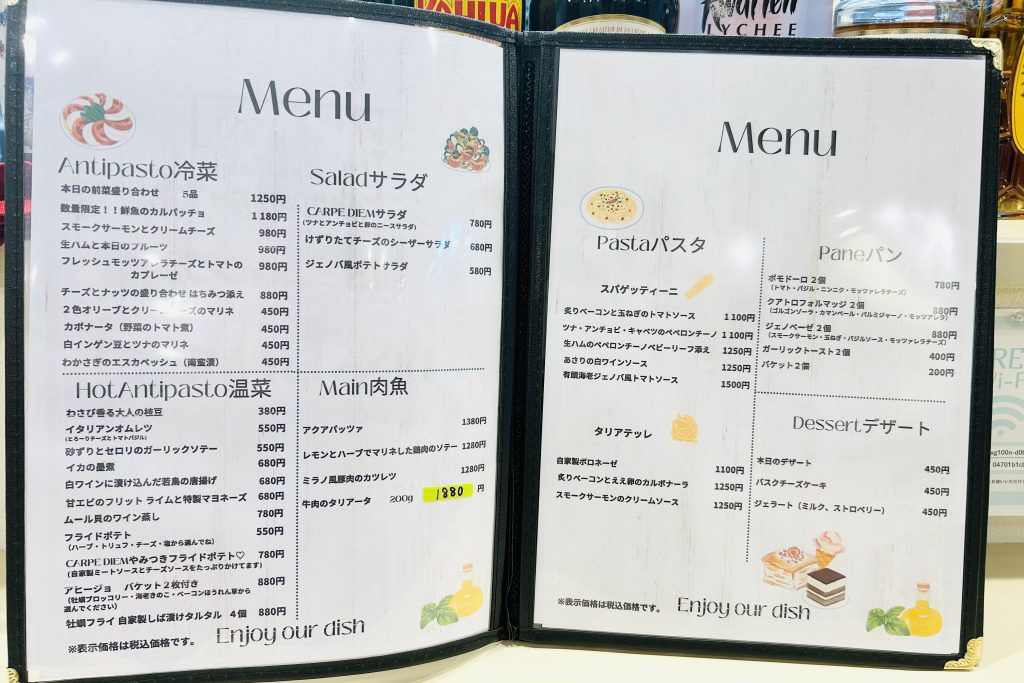 KAHLUA
LYCHEE
Menu
Antipasto冷菜
本日の前菜盛り合わせ 5品 1250円
数量限定！！鮮魚のカルパッチョ 1180円
スモークサーモンとクリームチーズ 980円
生ハムと本日のフルーツ 980円
フレッシュモッツァレラチーズとトマトの
カプレーゼ 980円
チーズとナッツの盛り合わせ はちみつ添え 880円
２色オリーブとクリームチーズのマリネ 450円
カポナータ（野菜のトマト煮） 450円
白インゲン豆とツナのマリネ 450円
わかさぎのエスカベッシュ（南蛮漬） 450円
Saladサラダ
CARPE DIEMサラダ 780円
(ツナとアンチョビと卵のニースサラダ)
けずりたてチーズのシーザーサラダ 680円
ジェノバ風ポテトサラダ 580円
HotAntipasto温菜
わさび香る大人の枝豆 380円
イタリアンオムレツ 550円
(とろーりチーズとトマトバジル)
砂ずりとセロリのガーリックソテー 550円
イカの墨煮 680円
白ワインに漬け込んだ若鳥の唐揚げ 680円
甘エビのフリット ライムと特製マヨネーズ 680円
ムール貝のワイン蒸し 780円
フライドポテト 550円
（ハーブ・トリュフ・チーズ・塩から選んでね）
CARPE DIEMやみつきフライドポテト♡ 780円
（自家製ミートソースとチーズソースをたっぷりかけてます）
アヒージョ バケット２枚付き 880円
（牡蠣ブロッコリー・海老きのこ・ベーコンほうれん草から
選んでください）
牡蠣フライ 自家製しば漬けタルタル ４個 880円
※表示価格は税込価格です。
Main肉魚
アクアパッツァ 1380円
レモンとハーブでマリネした鶏肉のソテー 1280円
ミラノ風豚肉のカツレツ 1280円
牛肉のタリアータ 200g 1880 円
Enjoy our dish
Menu
Pastaパスタ
スパゲッティーニ
炙りベーコンと玉ねぎのトマトソース 1100円
ツナ・アンチョビ・キャベツのペペロンチーノ 1100円
生ハムのペペロンチーノベビーリーフ添え 1250円
あさりの白ワインソース 1250円
有頭海老ジェノバ風トマトソース 1500円
タリアテッレ
自家製ボロネーゼ 1100円
炙りベーコンとええ卵のカルボナーラ 1250円
スモークサーモンのクリームソース 1250円
Paneパン
ポモドーロ２個 780円
（トマト・バジル・ニンニク・モッツァレラチーズ）
クアトロフォルマッジ２個 880円
（ゴルゴンゾーラ・カマンベール・パルミジャーノ・モッツァレラ）
ジェノベーゼ２個 880円
（スモークサーモン・玉ねぎ・バジルソース・モッツァレラチーズ）
ガーリックトースト２個 400円
バケット２個 200円
Dessertデザート
本日のデザート 450円
バスクチーズケーキ 450円
ジェラート（ミルク、ストロベリー） 450円
※表示価格は税込価格です。
Enjoy our dish